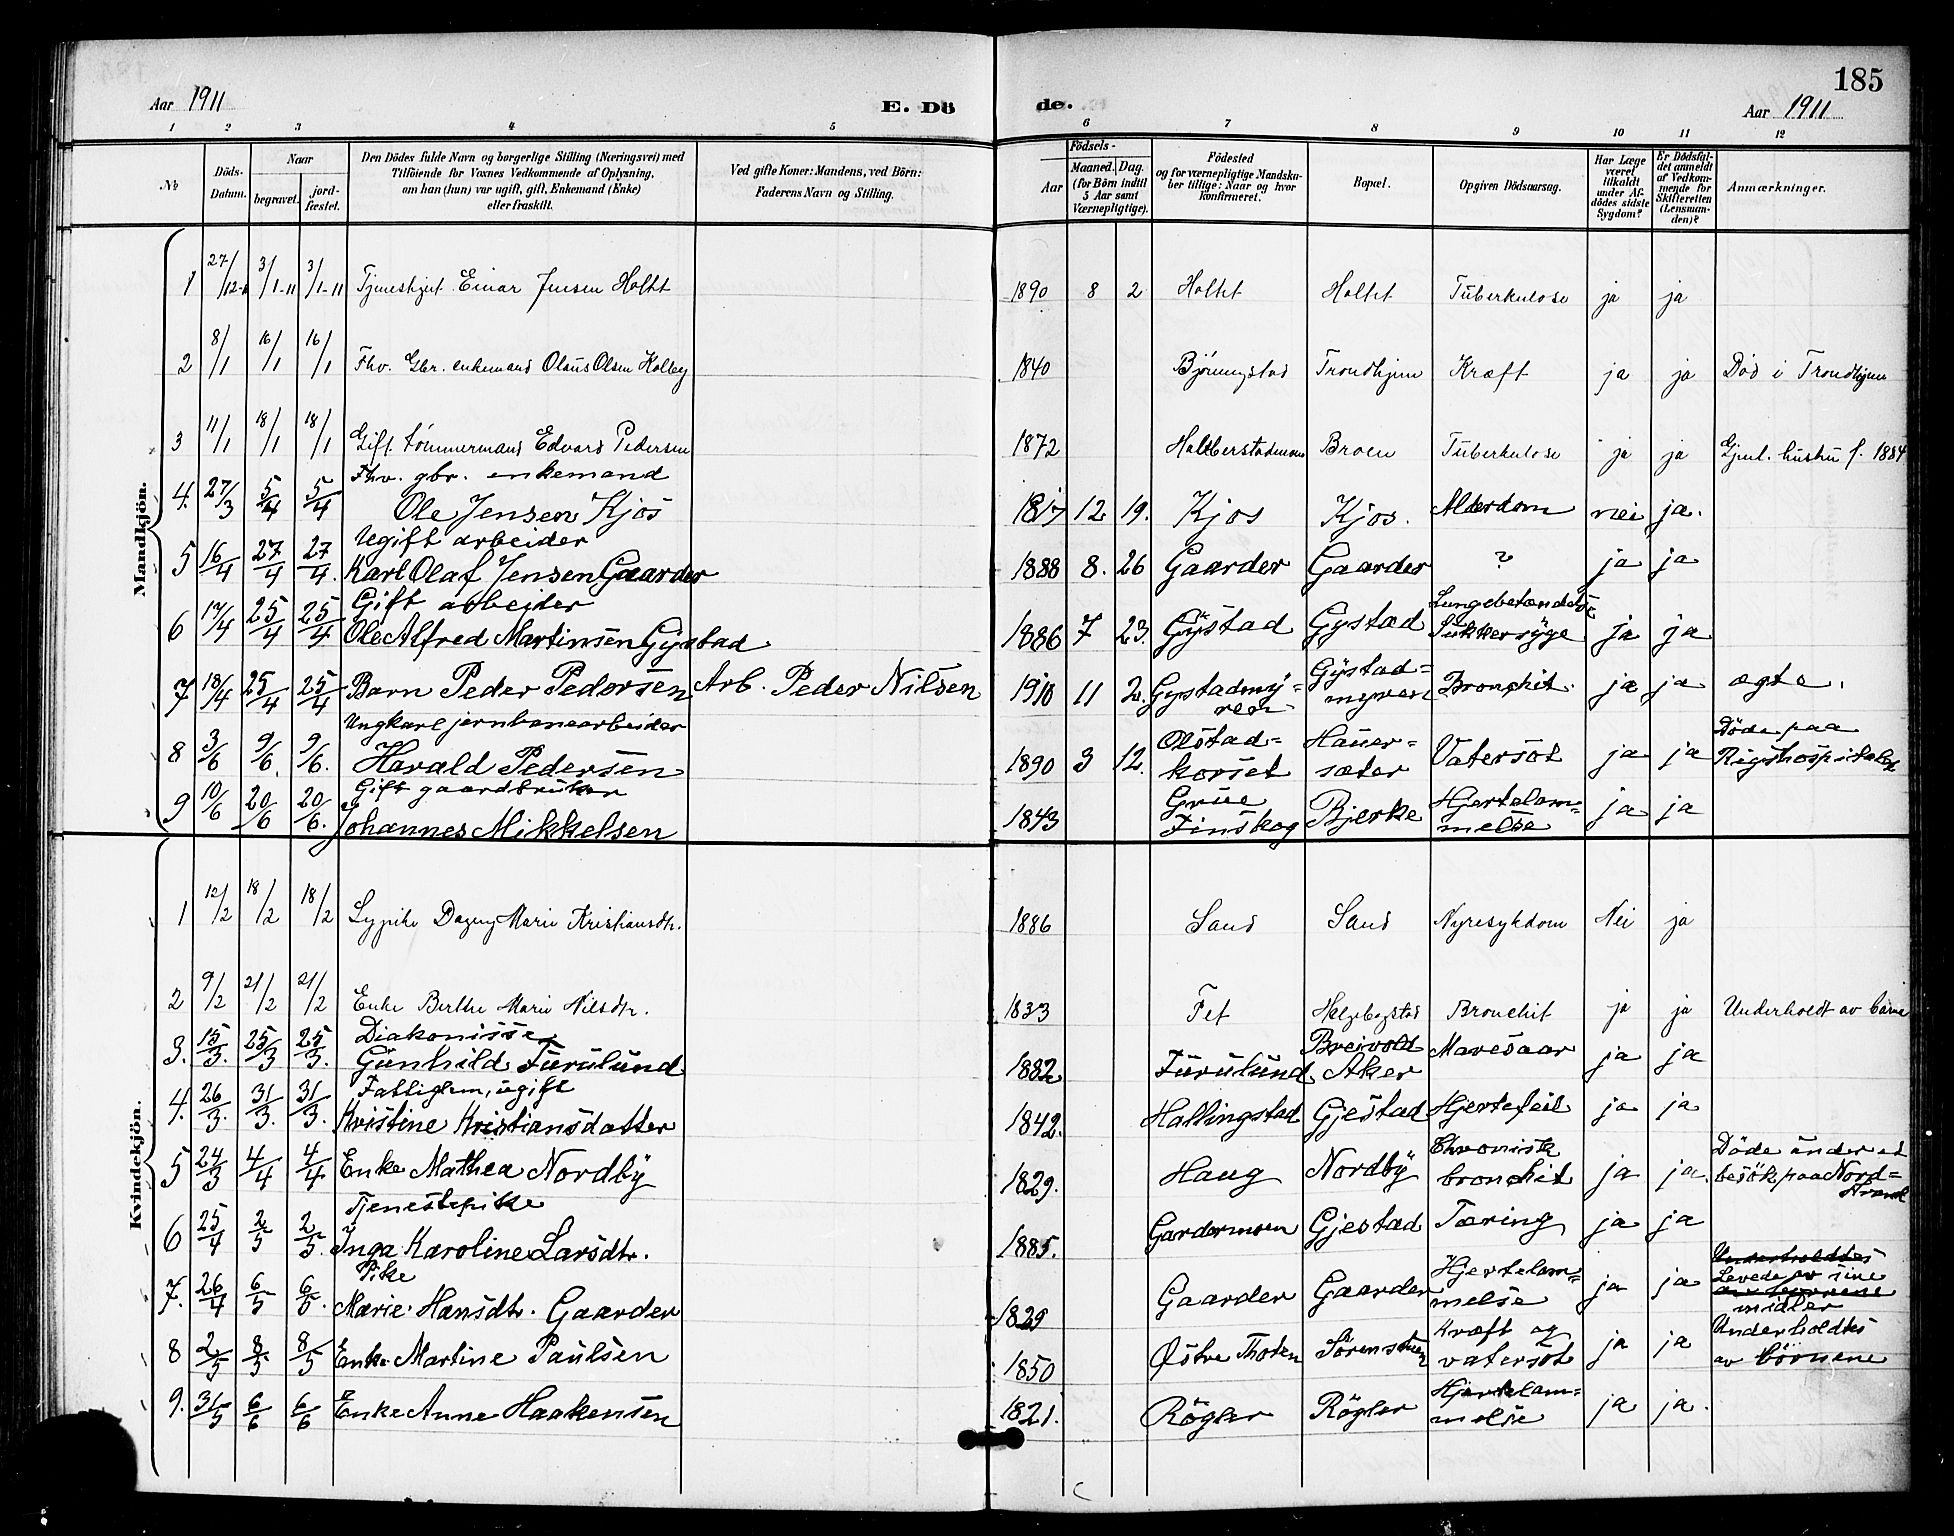 185
Aar 1911 E. Dö de. Aar 1911
1 2 3 4 5 6 7 8 9 10 11 12
No
Döds-Datum.
Naar
begravet.
jord-fæstet.
Den Dödes fulde Navn og borgerlige Stilling (Næringsvei) med
Tilföiende for Voxnes Vedkommende af Oplysning,
om han (hun) var ugift, gift, Enkemand (Enke)
eller fraskilt.
Ved gifte Koner: Mandens, ved Börn:
Faderens Navn og Stilling.
Födsels-
Aar
Maaned. Dag.
(for Börn indtil
5 Aar samt
Værnepligtige).
Födested
og for værnepligtige Mandska-
ber tillige: Naar og hvor
Konfirmeret.
Bopæl.
Opgiven Dödsaarsag.
Har Læge
været
tilkaldt
under Af-
dödes sidste
Sygdom?
Er Dödsfal-
det anmeldt
af Vedkom-
mende for
Skifteretten
(Lensman-
den)?
Anmærkninger.
Mandkjön.
1 27/12 3/1-11 3/1-11 Tjenestgut Einar Jensen Holtet 1890 8 2 Holtet Holtet Tuberkulose ja ja
2 8/1 16/1 16/1 Fhv. Gbr. enkemand Olaus Olsen Kolbey 1840 Trondhjem Kræft ja ja Död i Trondhjem
3 11/1 18/1 18/1 Gift tömmermand Edvard Pedersen 1872 Broen Tuberkulose ja ja
Fhv. gbr. enkemand
4. 27/3 5/4 5/4 Ole Jensen Kjos 1817 12 19. Kjos Kjos. Alderdom nei ja.
Ugift arbeider
5 16/4 27/4 27/4. Karl Olaf Jensen Gaarder 1888 8. 26 Gaarder Gaarder ? ja ja
Gift arbeider
6 17/4 25/4 25/4 Ole Alfred Martinsen Gystad 1886 7 23. Gystad Gystad Lungebetændelse Sukkersyge ja ja
7 18/4 25/4 25/4 Barn Peder Pedersen Arb. Peder Nilsen 1910 11 2. Gystadmy-ren Gystad-myren Bronchit. ja ja ægte.
Ungkarl jernbanearbeider
8 3/6 9/6. 9/6. Harald Pedersen 1890 3 12. Olstad-korset Hauer-sæter Vatersot ja ja Döde paa Rigshospitalet
Gift gaardbruker
9 10/6 20/6 20/6. Johannes Mikkelsen 1843 Grue Finskog Bjerke Hjertelam-melse ja ja
Kvindekjön.
1 12/2 18/2 18/2 Dagny Marie Kristiansdtr. 1886 Sand Sand Nyresykdom Nei ja
2 9/2 21/2 21/2 Enke Berthe Marie Nilsdtr. 1833 Fet Bronchit ja ja Underholdt av börne
Diakonisse
3. 15/3. 25/3 25/3. Gunhild Furulund 1882 Furulund Breivold Aker Mavesaar ja ja
Fattiglem, ugift
4. 26/3. 31/3. 31/3. Kristine Kristiansdatter 1842. Hallingstad Gjestad Hjertefeil ja ja
5 24/3 4/4 4/4 Enke Mathea Nordby 1829. Haug Nordby Chronisk bronchit ja ja. Döde under et besök paa Nord-strand
Tjenestepike
6 25/4 2/5 2/5. Inga Karoline Larsdtr. 1885. Gardermoen Gjestad Tæring ja ja
Pike
7. 26/4 6/5 6/5. Marie Hansdtr. Gaarder 1829 Gaarder Gaarder Hjertelam-melse ja ja Underholdtes av börnene Levede av sine midler
8 2/5 8/5 8/5 Enke Martine Paulsen 1850 Østre Thoten Sörenstuen Kræft og vatersot ja ja Underholdtes av börnene
9. 31/5 6/6 6/6 Enke Anne Haakensen 1821. Rögler Rögler Hjertelam-melse ja ja.